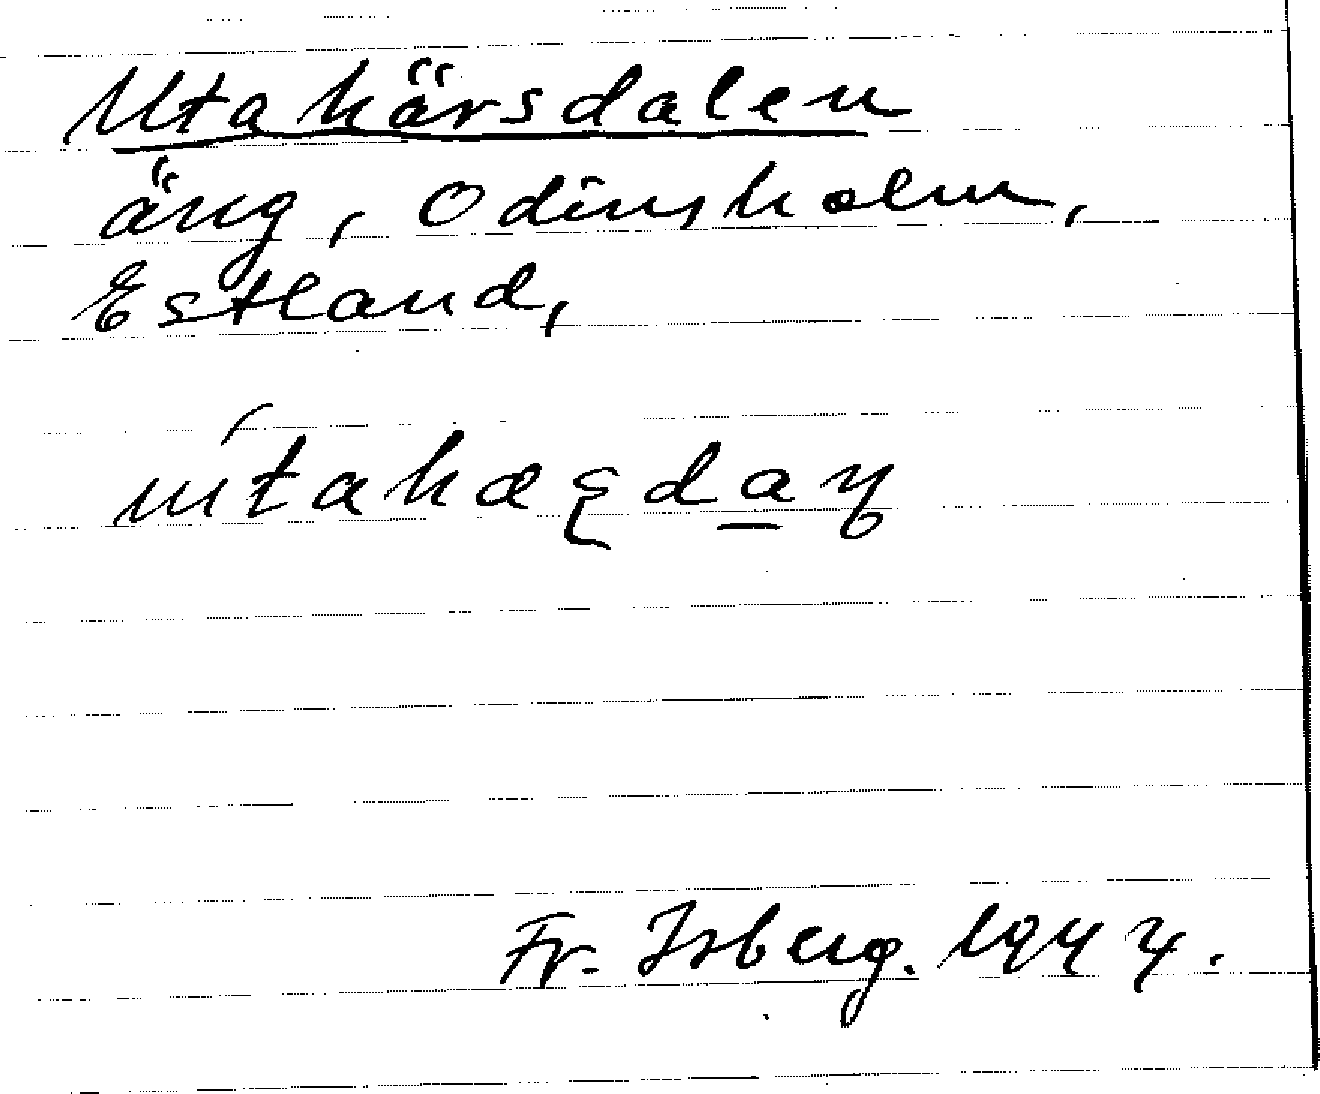 Utahärsdalen
äng, Odinsholm,
Estland,
Fr. Isberg. 1947.